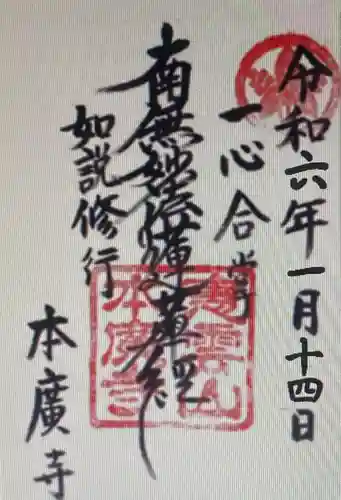 令和六年一月十四日
一心合掌
南無妙法蓮華経
如説修行
本廣寺